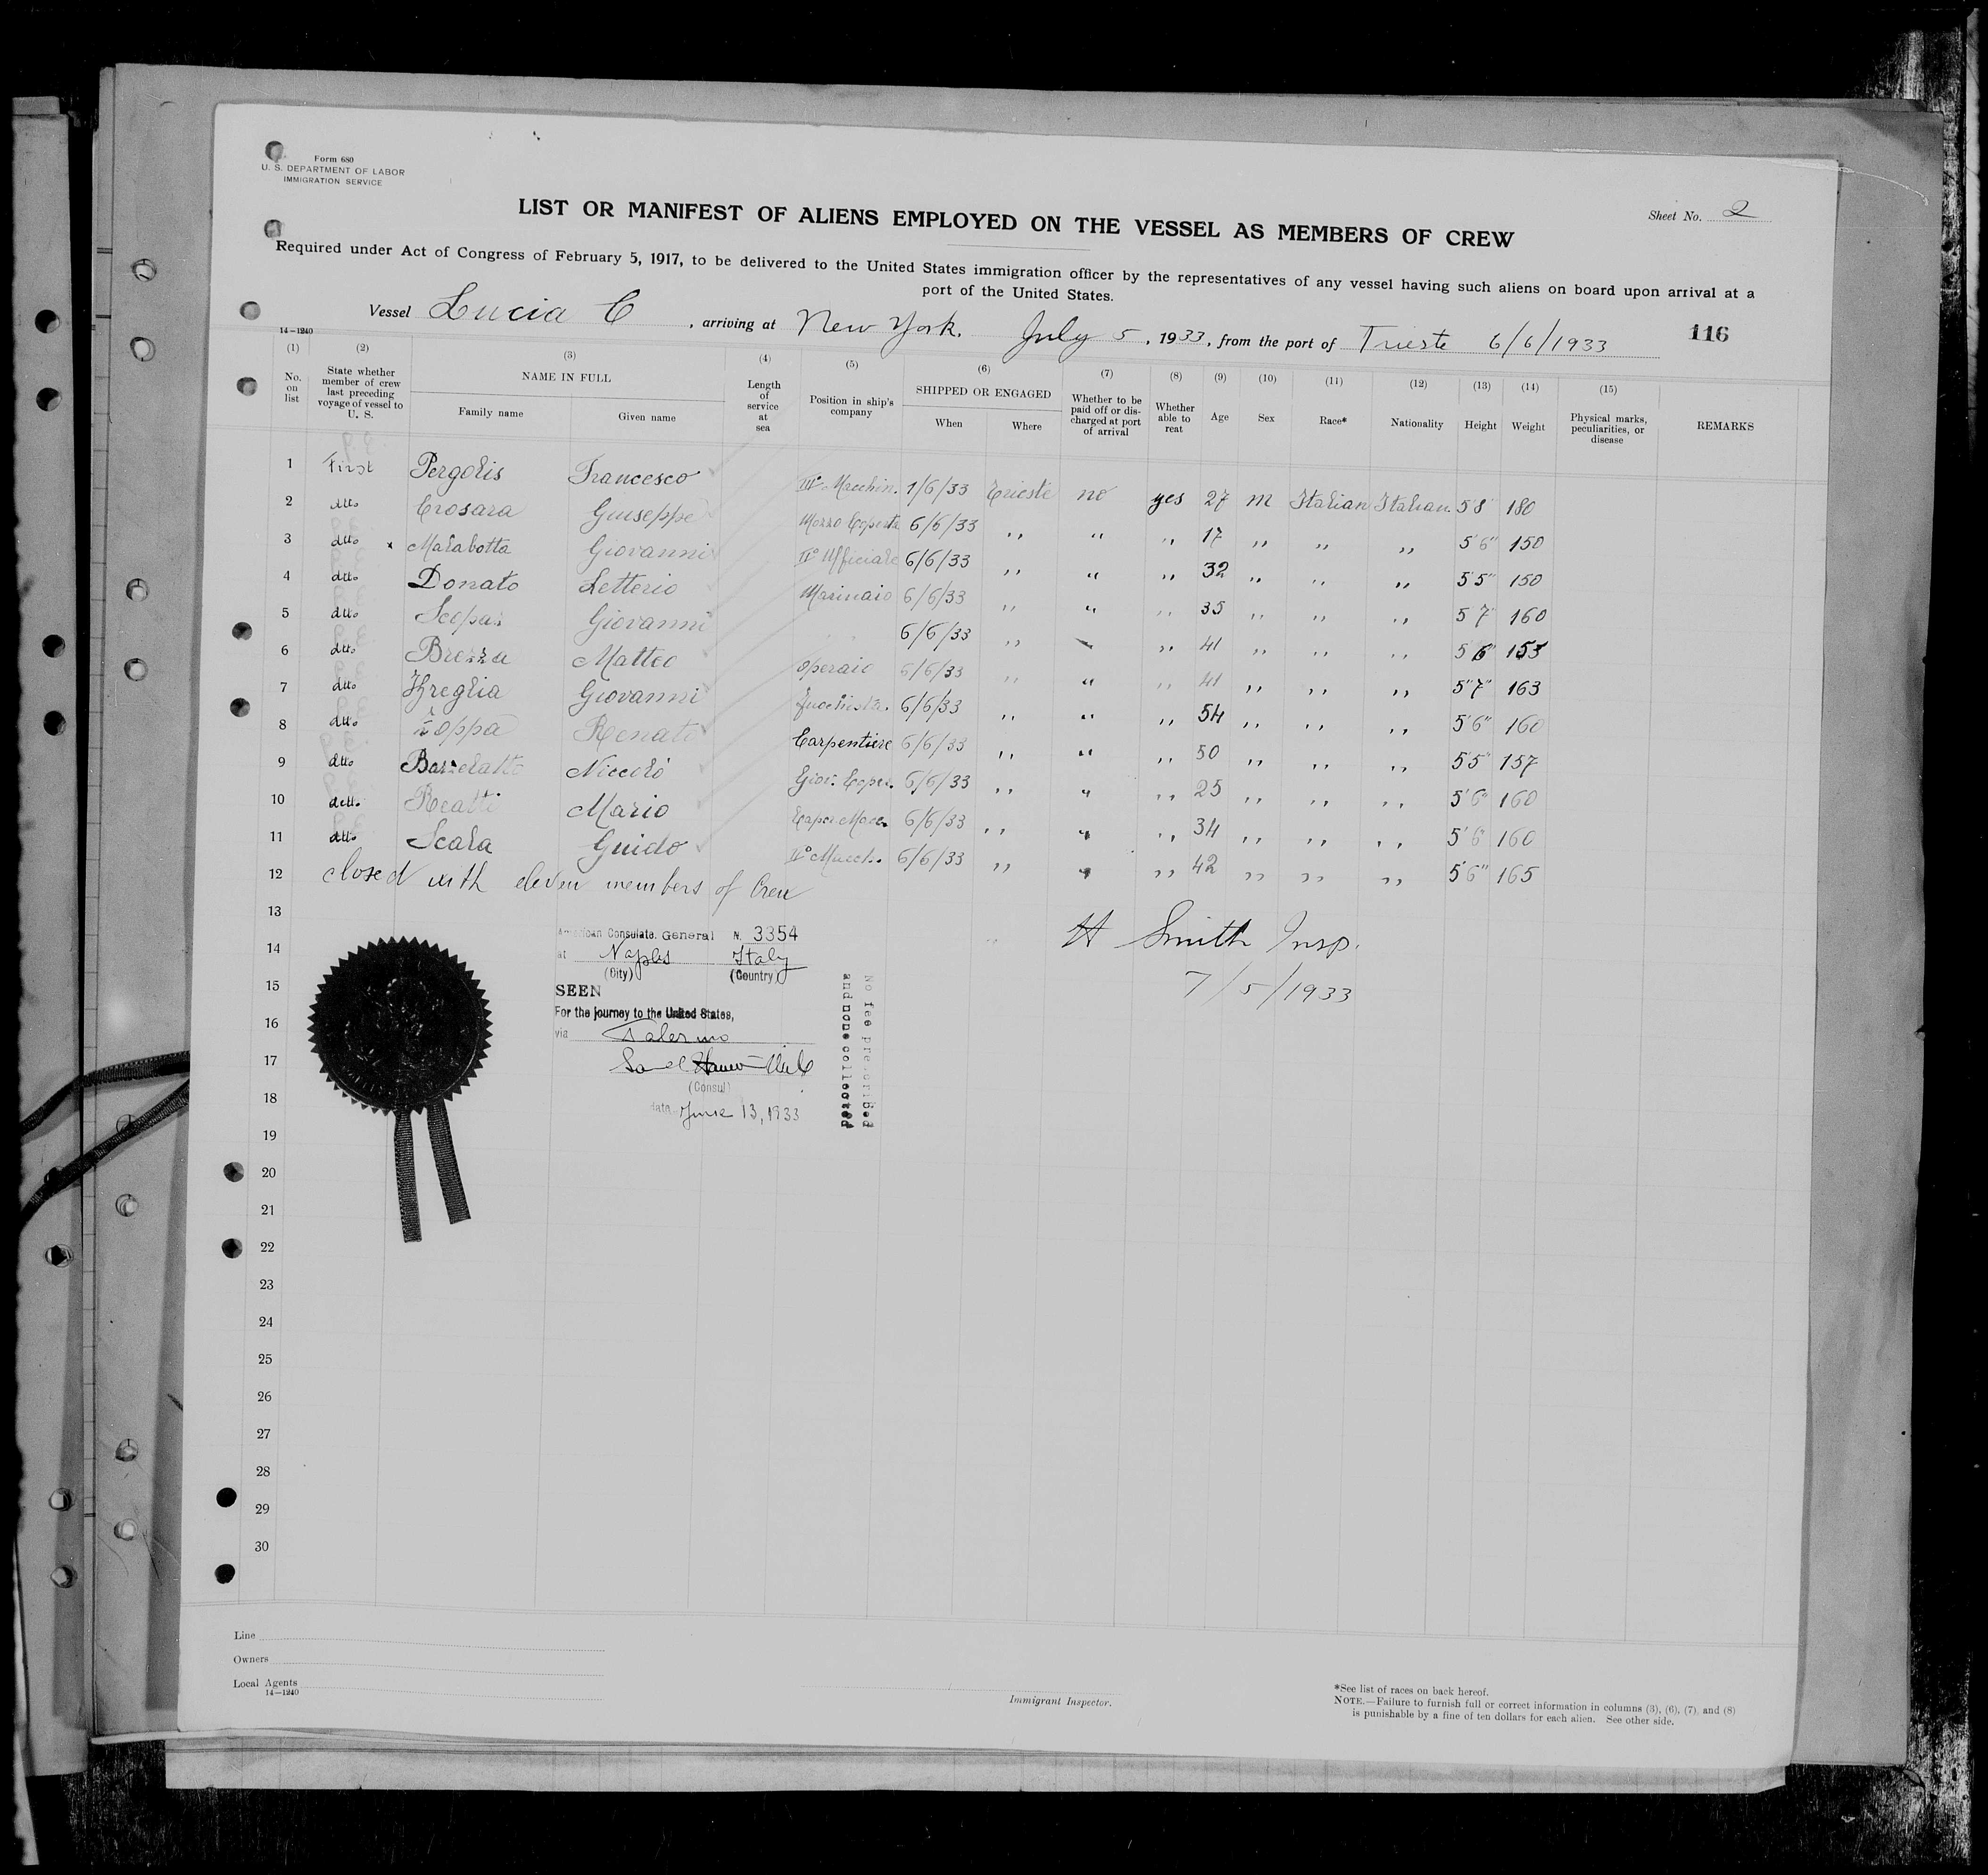 Form 680
U. S. DEPARTMENT OF LABOR
IMMIGRATION SERVICE
Sheet No. 2
LIST OR MANIFEST OF ALIENS EMPLOYED ON THE VESSEL AS MEMBERS OF CREW
Required under Act of Congress of February 5, 1917, to be delivered to the United States immigration officer by the representatives of any vessel having such aliens on board upon arrival at a
port of the United States.
Vessel Lucia C, arriving at New York. July 5, 1933, from the port of Trieste 6/6/1933
116
14-1240
(1) No. on list (2) State whether member of crew last preceding voyage of vessel to U. S. (3) NAME IN FULL Family name Given name (4) Length of service at sea (5) Position in ship's company (6) SHIPPED OR ENGAGED When Where (7) Whether to be paid off or discharged at port of arrival (8) Whether able to reat (9) Age (10) Sex (11) Race* (12) Nationality (13) Height (14) Weight (15) Physical marks, peculiarities, or disease REMARKS
1 First Pergolis Francesco III° Macchin. 1/6/33 Trieste no yes 27 m Italian Italian 5'8" 180
2 dtto Crosara Giuseppe Mozzo Coperta 6/6/33 ,, " ,, 17 ,, ,, ,, 5'6" 150
3 dtto x Malabotta Giovanni II° Ufficiale 6/6/33 ,, " ,, 32 ,, ,, ,, 5'5" 150
4 dtto Donato Letterio Marinaio 6/6/33 ,, " ,, 35 ,, ,, ,, 5'7" 160
5 dtto Giovanni 6/6/33 ,, ,, 41 ,, ,, ,, 5'6" 153
6 dtto Brezza Matteo operaio 6/6/33 ,, " ,, 41 ,, ,, ,, 5"7" 163
7 dtto Giovanni Fuochista. 6/6/33 ,, " ,, 54 ,, ,, ,, 5'6" 160
8 dtto Renato Carpentiere 6/6/33 ,, " ,, 50 ,, ,, ,, 5'5" 157
9 dtto Niccolò Giov. Coper. 6/6/33 ,, " ,, 25 ,, ,, ,, 5'6" 160
10 dtto Mario 6/6/33 ,, " ,, 34 ,, ,, ,, 5'6 160
11 dtto Scala Guido II° Macch. 6/6/33 ,, " ,, 42 ,, ,, ,, 5'6" 165
12 closed with eleven members of Crew
13
H Smith Insp.
7/5/1933
14
15
16
17
18
19
20
21
22
23
24
25
26
27
28
29
30
American Consulate. General N. 3354
at Naples Italy
(City) (Country)
SEEN
For the journey to the United States,
via Palermo
(Consul)
date June 13, 1933
No fee prescribed
and none collected
Line
Owners
Local Agents
14-1240
Immigrant Inspector.
*See list of races on back hereof.
NOTE.—Failure to furnish full or correct information in columns (3), (6), (7), and (8)
is punishable by a fine of ten dollars for each alien. See other side.